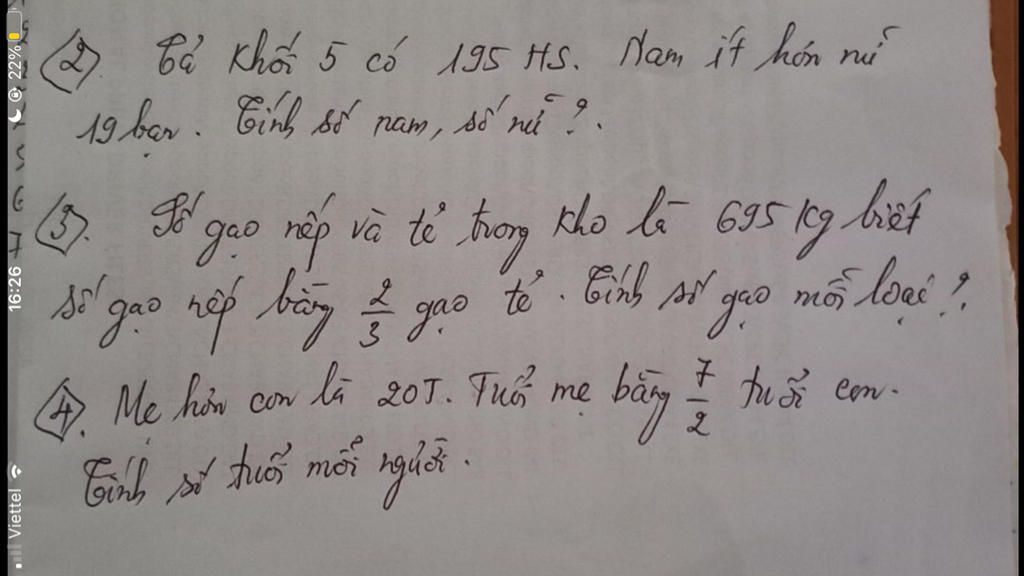 ② Cả khối 5 có 195 HS. Nam ít hơn nữ
19 bạn. Tính số nam, số nữ?.
③. Số gạo nếp và tẻ trong kho là 695 kg biết
số gạo nếp bằng 2/3 gạo tẻ. Tính số gạo mỗi loại?
④. Mẹ hơn con là 20T. Tuổi mẹ bằng 7/2 tuổi con.
Tính số tuổi mỗi người.
22%
16:26
Viettel
5
6
7